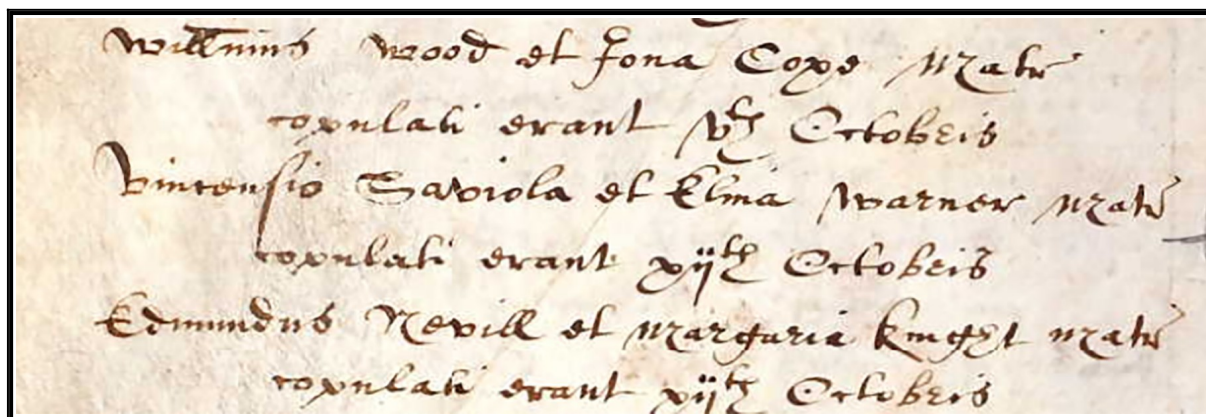 Willmus Wood et Jona Cope matr
copulati erant vth Octobris
Vincensio Saviola et Elina Warner matr
copulati erant xijth Octobris
Edmundus Nevill et Margaria Knight matr
copulati erant xijth Octobris